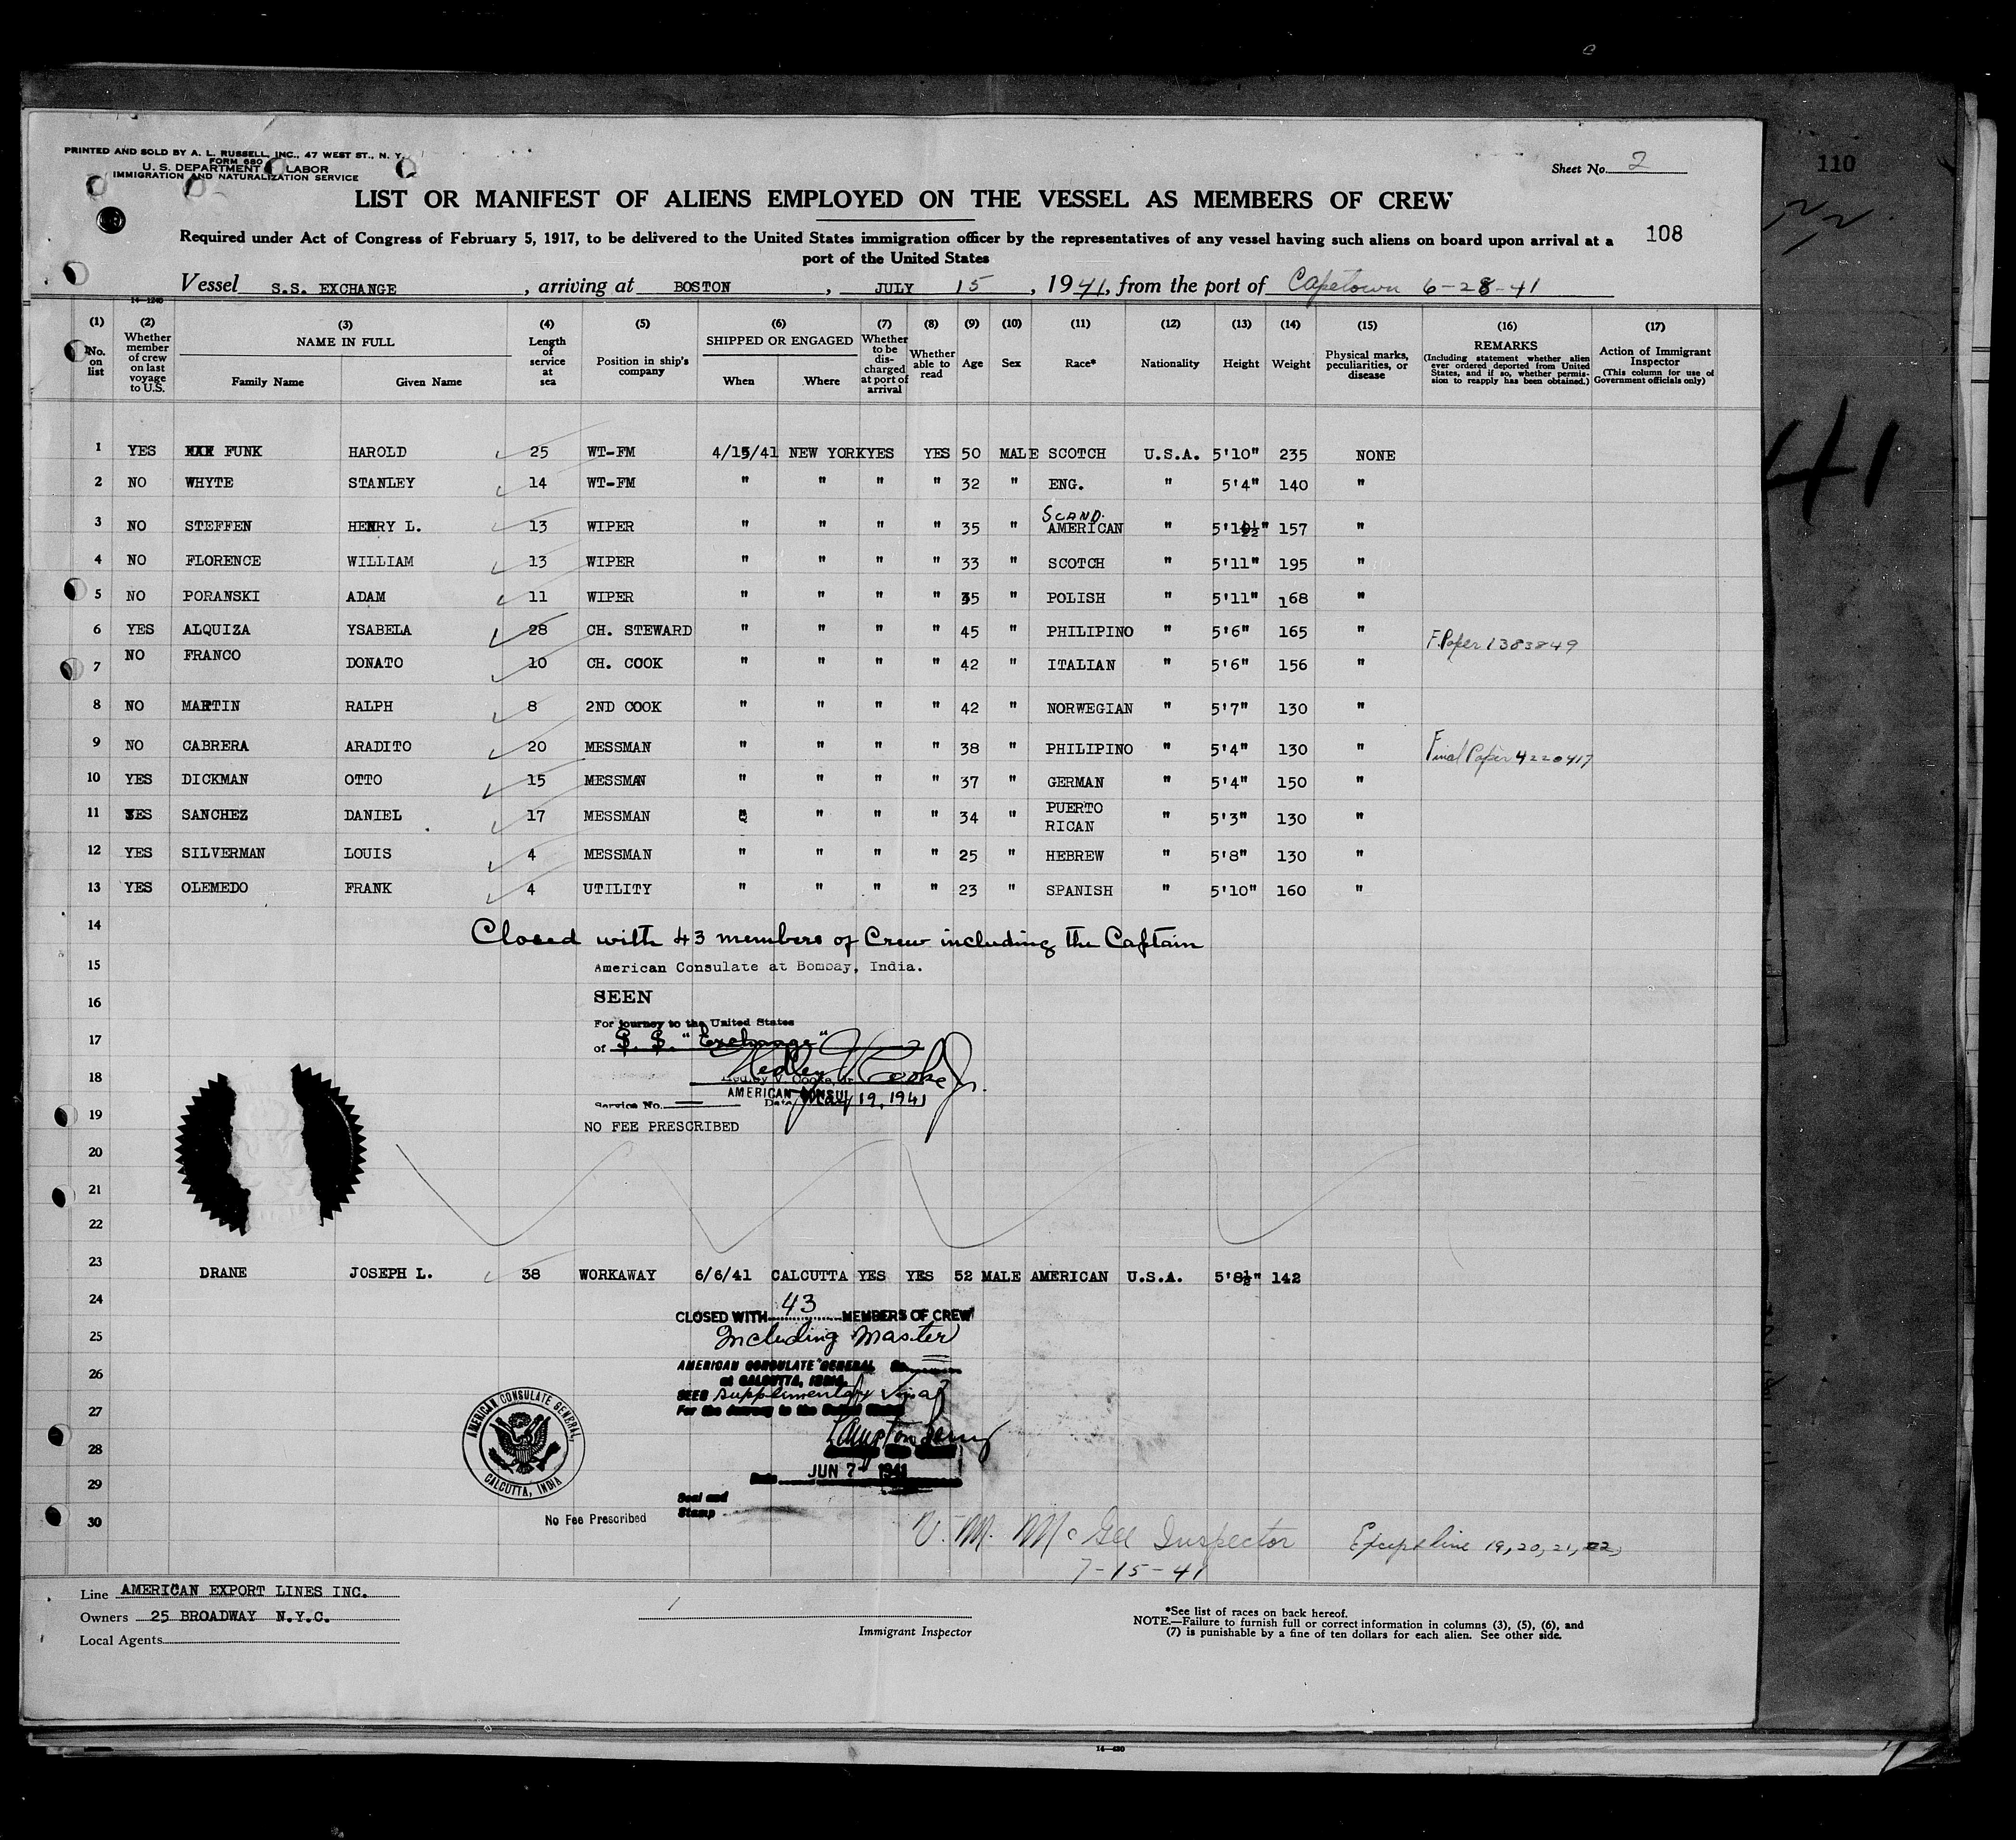 110
PRINTED AND SOLD BY A. L. RUSSELL, INC., 47 WEST ST., N. Y.
FORM 680
U. S. DEPARTMENT LABOR
IMMIGRATION AND NATURALIZATION SERVICE
Sheet No. 2
LIST OR MANIFEST OF ALIENS EMPLOYED ON THE VESSEL AS MEMBERS OF CREW
108
Required under Act of Congress of February 5, 1917, to be delivered to the United States immigration officer by the representatives of any vessel having such aliens on board upon arrival at a
port of the United States
Vessel S.S. EXCHANGE, arriving at BOSTON, JULY 15, 1941, from the port of Capetown 6-28-41
14-1240
(1) No. on list
(2) Whether member of crew on last voyage to U.S.
(3) NAME IN FULL Family Name Given Name
(4) Length of service at sea
(5) Position in ship's company
(6) SHIPPED OR ENGAGED When Where
(7) Whether to be discharged at port of arrival
(8) Whether able to read
(9) Age
(10) Sex
(11) Race*
(12) Nationality
(13) Height
(14) Weight
(15) Physical marks, peculiarities, or disease
(16) REMARKS (Including statement whether alien ever ordered deported from United States, and if so, whether permission to reapply has been obtained.)
(17) Action of Immigrant Inspector (This column for use of Government officials only)
1 YES FUNK HAROLD 25 WT-FM 4/15/41 NEW YORK YES YES 50 MALE SCOTCH U.S.A. 5'10" 235 NONE
2 NO WHYTE STANLEY 14 WT-FM " " " " 32 " ENG. " 5'4" 140 "
3 NO STEFFEN HENRY L. 13 WIPER " " " " 35 " SCAND. AMERICAN " 157 "
4 NO FLORENCE WILLIAM 13 WIPER " " " " 33 " SCOTCH " 5'11" 195 "
5 NO PORANSKI ADAM 11 WIPER " " " " 35 " POLISH " 5'11" 168 "
6 YES ALQUIZA YSABELA 28 CH. STEWARD " " " " 45 " PHILIPINO " 5'6" 165 " F. Paper 1383849
7 NO FRANCO DONATO 10 CH. COOK " " " " 42 " ITALIAN " 5'6" 156 "
8 NO MARTIN RALPH 8 2ND COOK " " " " 42 " NORWEGIAN " 5'7" 130 "
9 NO CABRERA ARADITO 20 MESSMAN " " " " 38 " PHILIPINO " 5'4" 130 " Final Paper 4220417
10 YES DICKMAN OTTO 15 MESSMAN " " " " 37 " GERMAN " 5'4" 150 "
11 YES SANCHEZ DANIEL 17 MESSMAN " " " " 34 " PUERTO RICAN " 5'3" 130 "
12 YES SILVERMAN LOUIS 4 MESSMAN " " " " 25 " HEBREW " 5'8" 130 "
13 YES OLEMEDO FRANK 4 UTILITY " " " " 23 " SPANISH " 5'10" 160 "
14 Closed with 43 members of Crew including the Captain
15 American Consulate at Bombay, India.
16 SEEN
For journey to the United States
17 of S. S. "Exchange"
Hedley V Cooke Jr.
18 Hedley V. Cooke, Jr.
AMERICAN CONSUL
19 Service No. Date May 19, 1941
NO FEE PRESCRIBED
20
21
22
23 DRANE JOSEPH L. 38 WORKAWAY 6/6/41 CALCUTTA YES YES 52 MALE AMERICAN U.S.A. 5'8½" 142
24 CLOSED WITH 43 MEMBERS OF CREW
25 Including Master
26 AMERICAN CONSULATE GENERAL
at CALCUTTA, INDIA.
SEEN supplimentary visa
27 For the Journey to the United States
AMERICAN CONSULATE GENERAL,
CALCUTTA, INDIA
28
JUN 7 - 1941
29 Date
Seal and
Stamp
30 No Fee Prescribed
V. M. McGee Inspector Except line 19, 20, 21, 22,
7-15-41
Line AMERICAN EXPORT LINES INC.
Owners 25 BROADWAY N.Y.C.
Local Agents
Immigrant Inspector
*See list of races on back hereof.
NOTE.—Failure to furnish full or correct information in columns (3), (5), (6), and
(7) is punishable by a fine of ten dollars for each alien. See other side.
41